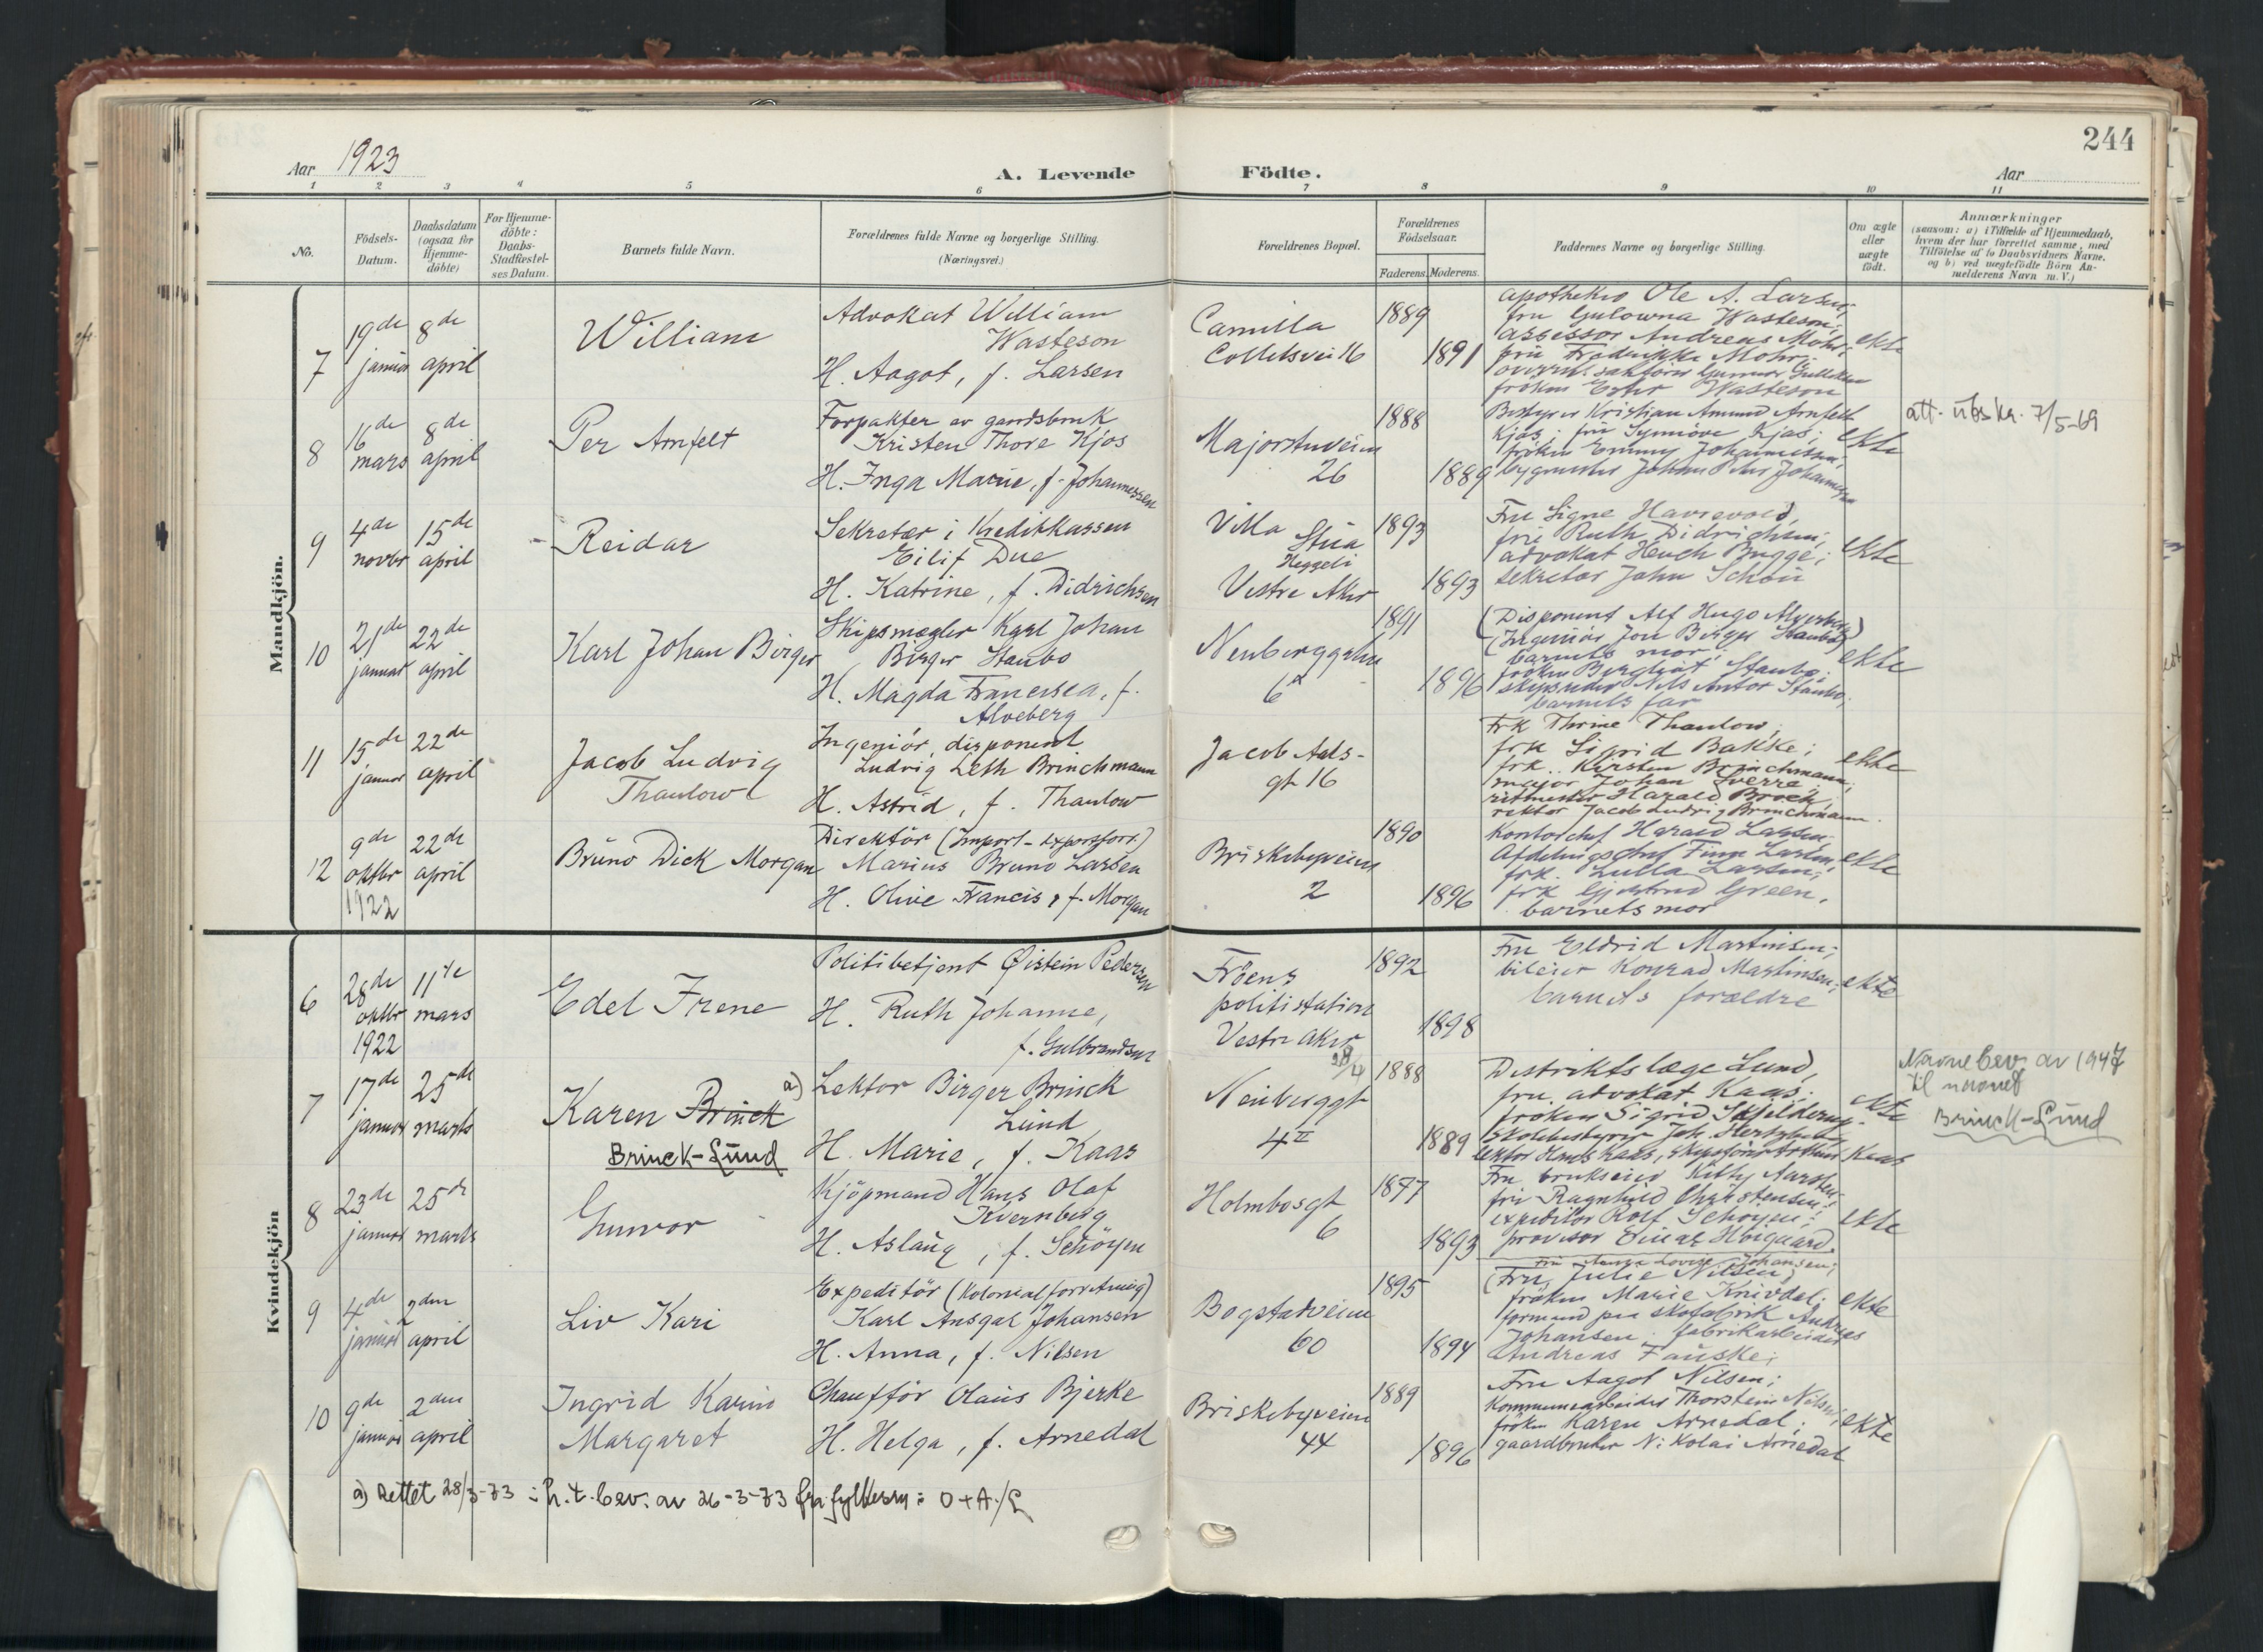 244
Aar 1923
A. Levende Födte.
Aar
1 2 3 4 5 6 7 8 9 10 11
No.
Födsels-Datum.
Daabsdatum (ogsaa for Hjemme-döbte)
For Hjemme-döbte: Daabs-Stadfæstel-ses Datum.
Barnets fulde Navn.
Forældrenes fulde Navne og borgerlige Stilling. (Næringsvei.)
Forældrenes Bopæl.
Forældrenes Födselsaar.
Faderens. Moderens.
Faddernes Navne og borgerlige Stilling.
Om ægte eller uægte födt.
Anmærkninger
(saasom: a) i Tilfælde af Hjemmedaab,
hvem der har forrettet samme, med
Tilföielse af to Daabsvidners Navne.
og b) ved uægtefödte Börn An-
melderens Navn m. V.)
Mandkjön.
7
19de januar
8de april
William
Advokat William
Wasteson
H. Aagot, f. Larsen
Camilla
Colletsvei 16
1889
1891
apotheker Ole A. Larsen;
fru Gulowna Wasteson;
assessor Andreas Mohr;
fru Fredrikke Mohr;
frøken Ester Wasteson
ekte
8
16de mars
8de april
Per Arnfelt
Forpakter av gaardsbruk
Kristen Thore Kjos
H. Inga Marie, f. Johannessen
Majorstuveien
26
1888
1889
Bestyrer Kristian Amund Arnfelt
Kjos; fru Synnöve Kjos;
fröken Emmy Johannessen;
bygmester Johan Johannessen
ekte
att. utskr. 7/5-69
9
4de novbr
15de april
Reidar
Sekretær i Kreditkassen
Eilif Due
H. Katrine, f. Didrichsen
Villa
Stua
Heggeli
Vestre Aker
1893
1893
Fru Signe Havrevold,
fru Ruth Didrichsen;
advokat Hench Bugge;
sekretær John Schøn
ekte
10
21de januar
22de april
Karl Johan Birger
Skipsmægler Karl Johan
Birger Staubo
H. Magda Francesca, f.
Alveberg
Neuberggaten
6a
1891
1896
(Disponent Alf Hugo Alveberg)
(Ingeniör Jon Birger Staubo)
barnets mor;
fröken Bergliot Staubo;
skipsreder Nils Anton Staubo;
barnets far
ekte
11
15de januar
22de april
Jacob Ludvig
Thaulow
Ingeniör, disponent
Ludvig Leth Brinchmann
H. Astrid, f. Thaulow
Jacob Aals-
gt 16
Frk Thrine Thaulow,
frk Sigrid Bakke;
frk. Kirsten Brinchmann;
major Johan Sverre,
ritmester Harald Brock,
rektor Jacob Ludvig Brinchmann.
ekte
12
9de oktbr 1922
22de april
Bruno Dick Morgan
Direktör (Import-exportforr.)
Marius Bruno Larsen
H. Olive Francis, f. Morgan
Briskebyveien
2
1890
1896
Kontorchef Harald Larsen
Afdelingschef Finn Larsen,
frk. Lulla Larsen;
frk Gjertrud Green,
barnets mor
ekte
Kvindekjön
6
28de oktbr 1922
11te mars
Edel Irene
Politibetjent Øistein Pedersen
H. Ruth Johanne,
f. Gulbrandsen
Fröens
politistation
Vestre Aker
1892
1898
Fru Eldrid Martinsen;
bileier Konrad Martinsen;
barnets forældre
ekte
7
17de januar
25de marts
Karen Brinck a)
Brinck-Lund
Lektor Birger Brinck
Lund
H. Marie, f. Kaas
28/4
Neuberggt
4 II
1888
1889
Distriktslæge Lund,
fru advokat Kaas;
fröken Sigrid Schjelderup
skolebestyrer Joh. Hertzberg
lektor Hans Kaas, skipsförer Arthur Kaas
ekte
Navnebev. av 1947
til navnet
Brinck-Lund
8
23de januar
25de marts
Gunvor
Kjöpmand Hans Olaf
Kvernberg
H. Aslaug, f. Schöyen
Holmbosgt
6
1897
1893
Fru brukseier Kitty Aarsten
fru Ragnhild Christensen;
expeditör Rolf Schöyen;
provisor Einar Höigaard.
ekte
9
4de januar
2den april
Liv Kari
Expeditör (Kolonialforretning)
Karl Ansgal Johansen
H. Anna, f. Nilsen
Bogstadveien
60
1895
1894
Lovise Johansen;
(Fru Julie Nilsen)
fröken Marie Knivdal;
formand paa skofabrik Andreas
Johansen; fabrikarbeider
Andreas Fauske;
ekte
10
9de januar
2den april
Ingrid Karin
Margaret
Chaufför Olaus Bjerke
H. Helga, f. Arnedal
Briskebyveien
44
1889
1896
Fru Aagot Nilsen;
Kommunearbeider Thorstein Nilsen
fröken Karen Arnedal;
gaardbruker Nikolai Arnedal
ekte
a) Rettet 28/3-73 i h.t. bev. av 26-3-73 fra fylkesm. i O+A./L